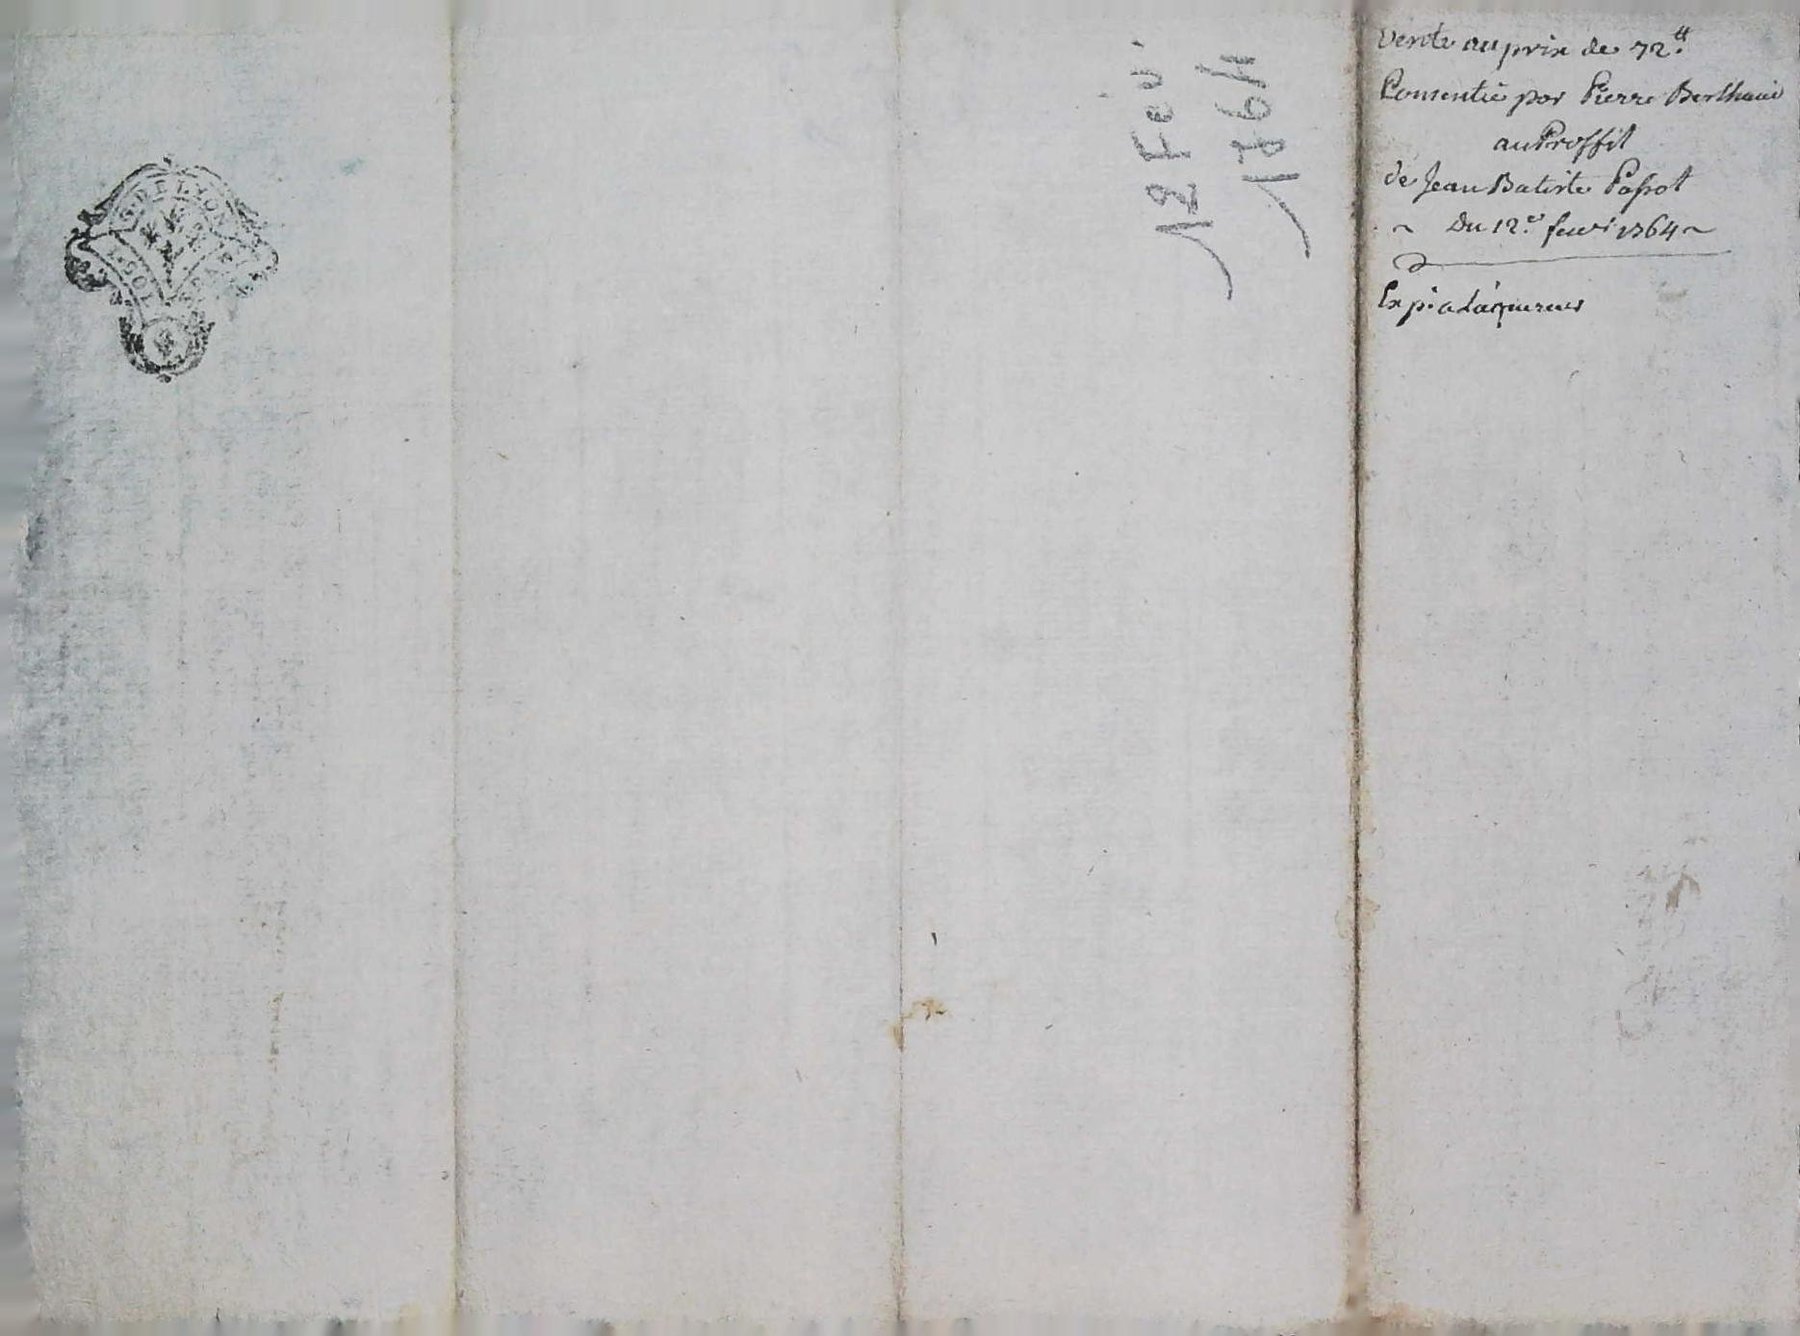 Vente au prix de 72.tt
Consentie par Pierre Berthaud
au Proffit
de Jean Batiste Passot
~ Du 12.e fevr 1764 ~
Exp.n a Laquereur
12 Fév.
1764
G. DE LYON